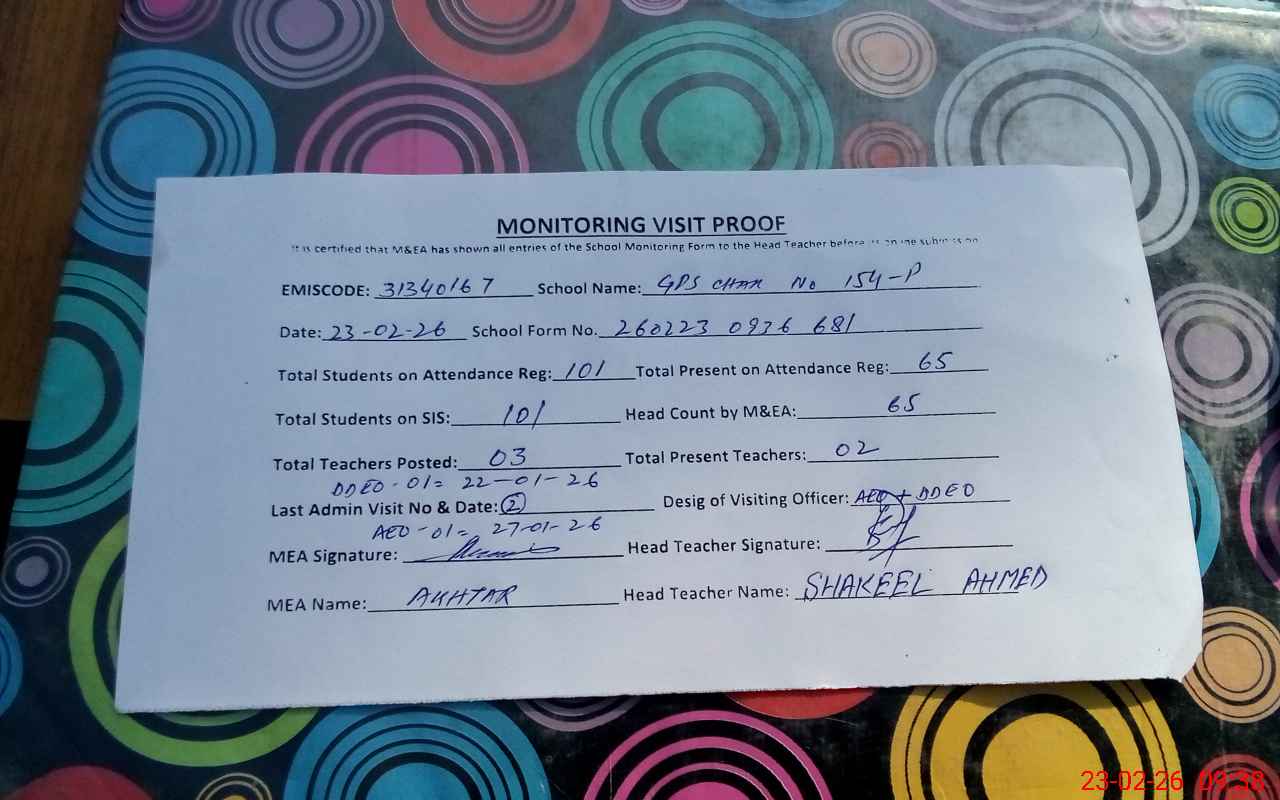 MONITORING VISIT PROOF
It is certified that M&EA has shown all entries of the School Monitoring Form to the Head Teacher before
EMISCODE: 31340167 School Name: GPS CHAK No 154-P
Date: 23-02-26 School Form No. 260223 0936 681
Total Students on Attendance Reg: 101 Total Present on Attendance Reg: 65
Total Students on SIS: 101 Head Count by M&EA: 65
Total Teachers Posted: 03 Total Present Teachers: 02
DDEO-01= 22-01-26
Last Admin Visit No & Date: 2 Desig of Visiting Officer: AEO + DDEO
AEO-01= 27-01-26
MEA Signature: Head Teacher Signature:
MEA Name: AKHTAR Head Teacher Name: SHAKEEL AHMED
23-02-26 09:38